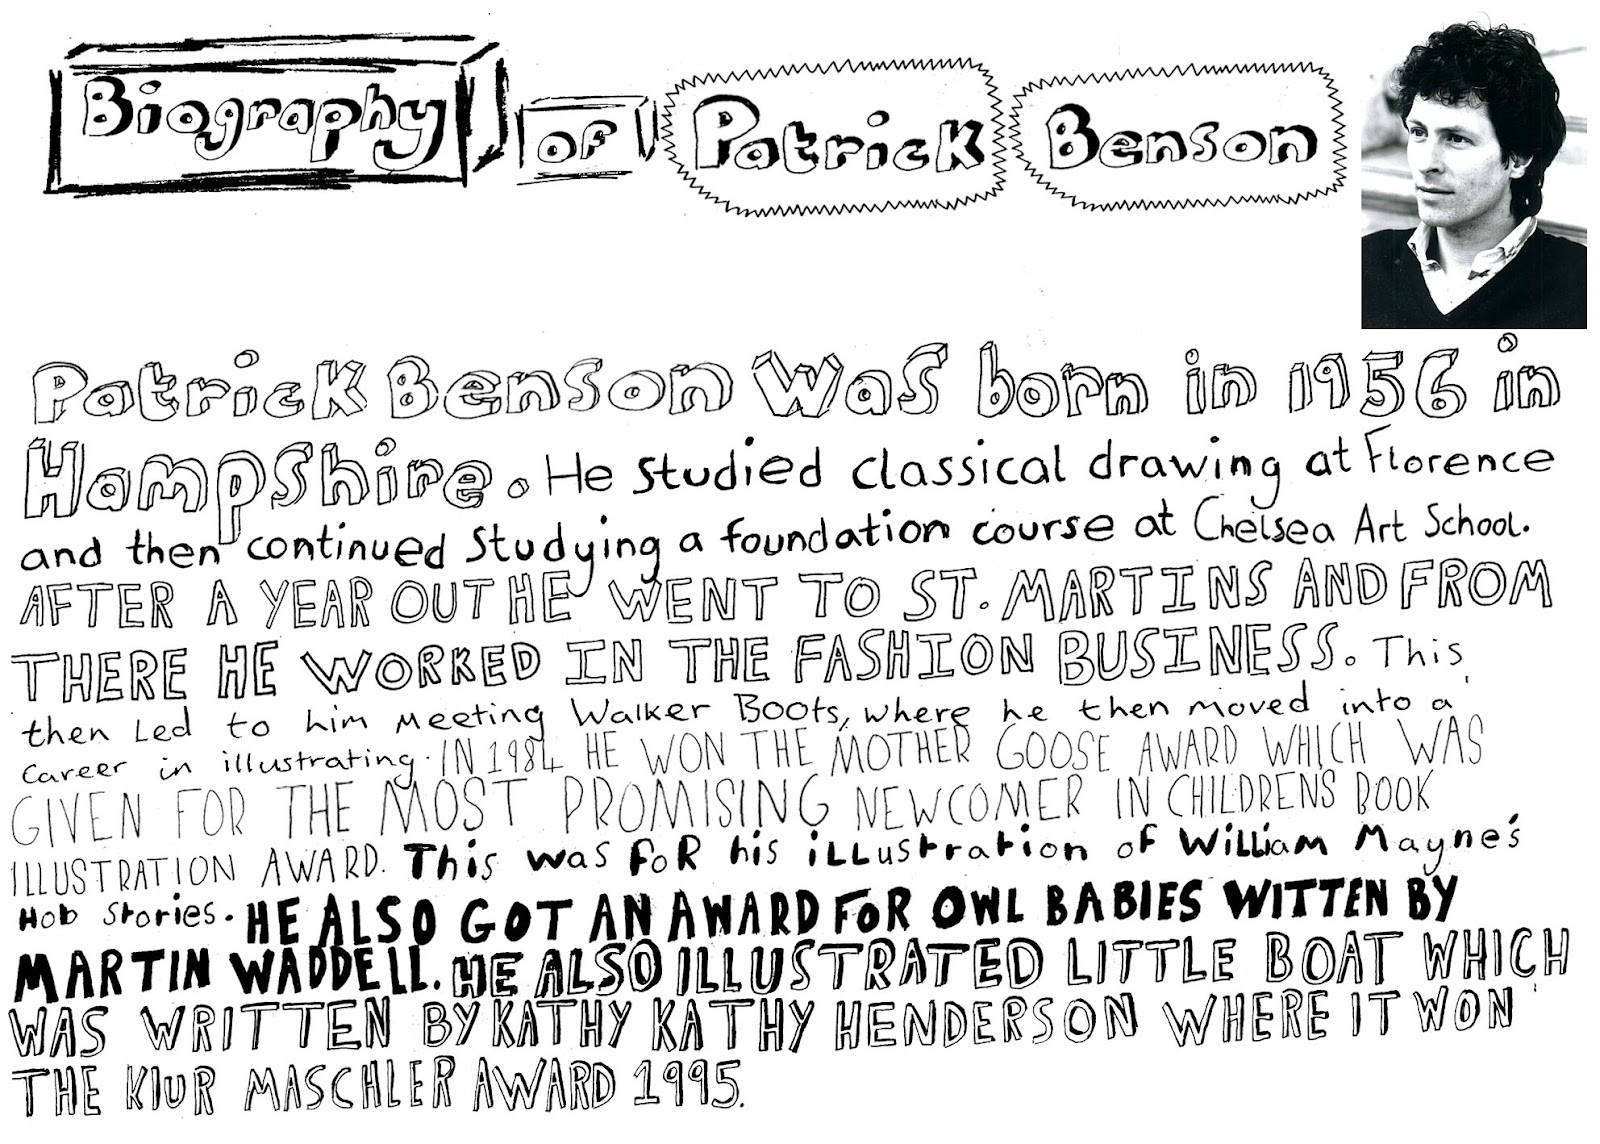 Biography of Patrick Benson
Patrick Benson was born in 1956 in
Hampshire. He studied classical drawing at Florence
and then continued studying a foundation course at Chelsea Art School.
AFTER A YEAR OUT HE WENT TO ST. MARTINS AND FROM
THERE HE WORKED IN THE FASHION BUSINESS. This
then led to him meeting Walker Boots, where he then moved into a
career in illustrating. IN 1984 HE WON THE MOTHER GOOSE AWARD WHICH WAS
GIVEN FOR THE MOST PROMISING NEWCOMER IN CHILDRENS BOOK
ILLUSTRATION AWARD. This was for his illustration of William Mayne's
Hob Stories. HE ALSO GOT AN AWARD FOR OWL BABIES WITTEN BY
MARTIN WADDELL. HE ALSO ILLUSTRATED LITTLE BOAT WHICH
WAS WRITTEN BY KATHY KATHY HENDERSON WHERE IT WON
THE KIUR MASCHLER AWARD 1995.